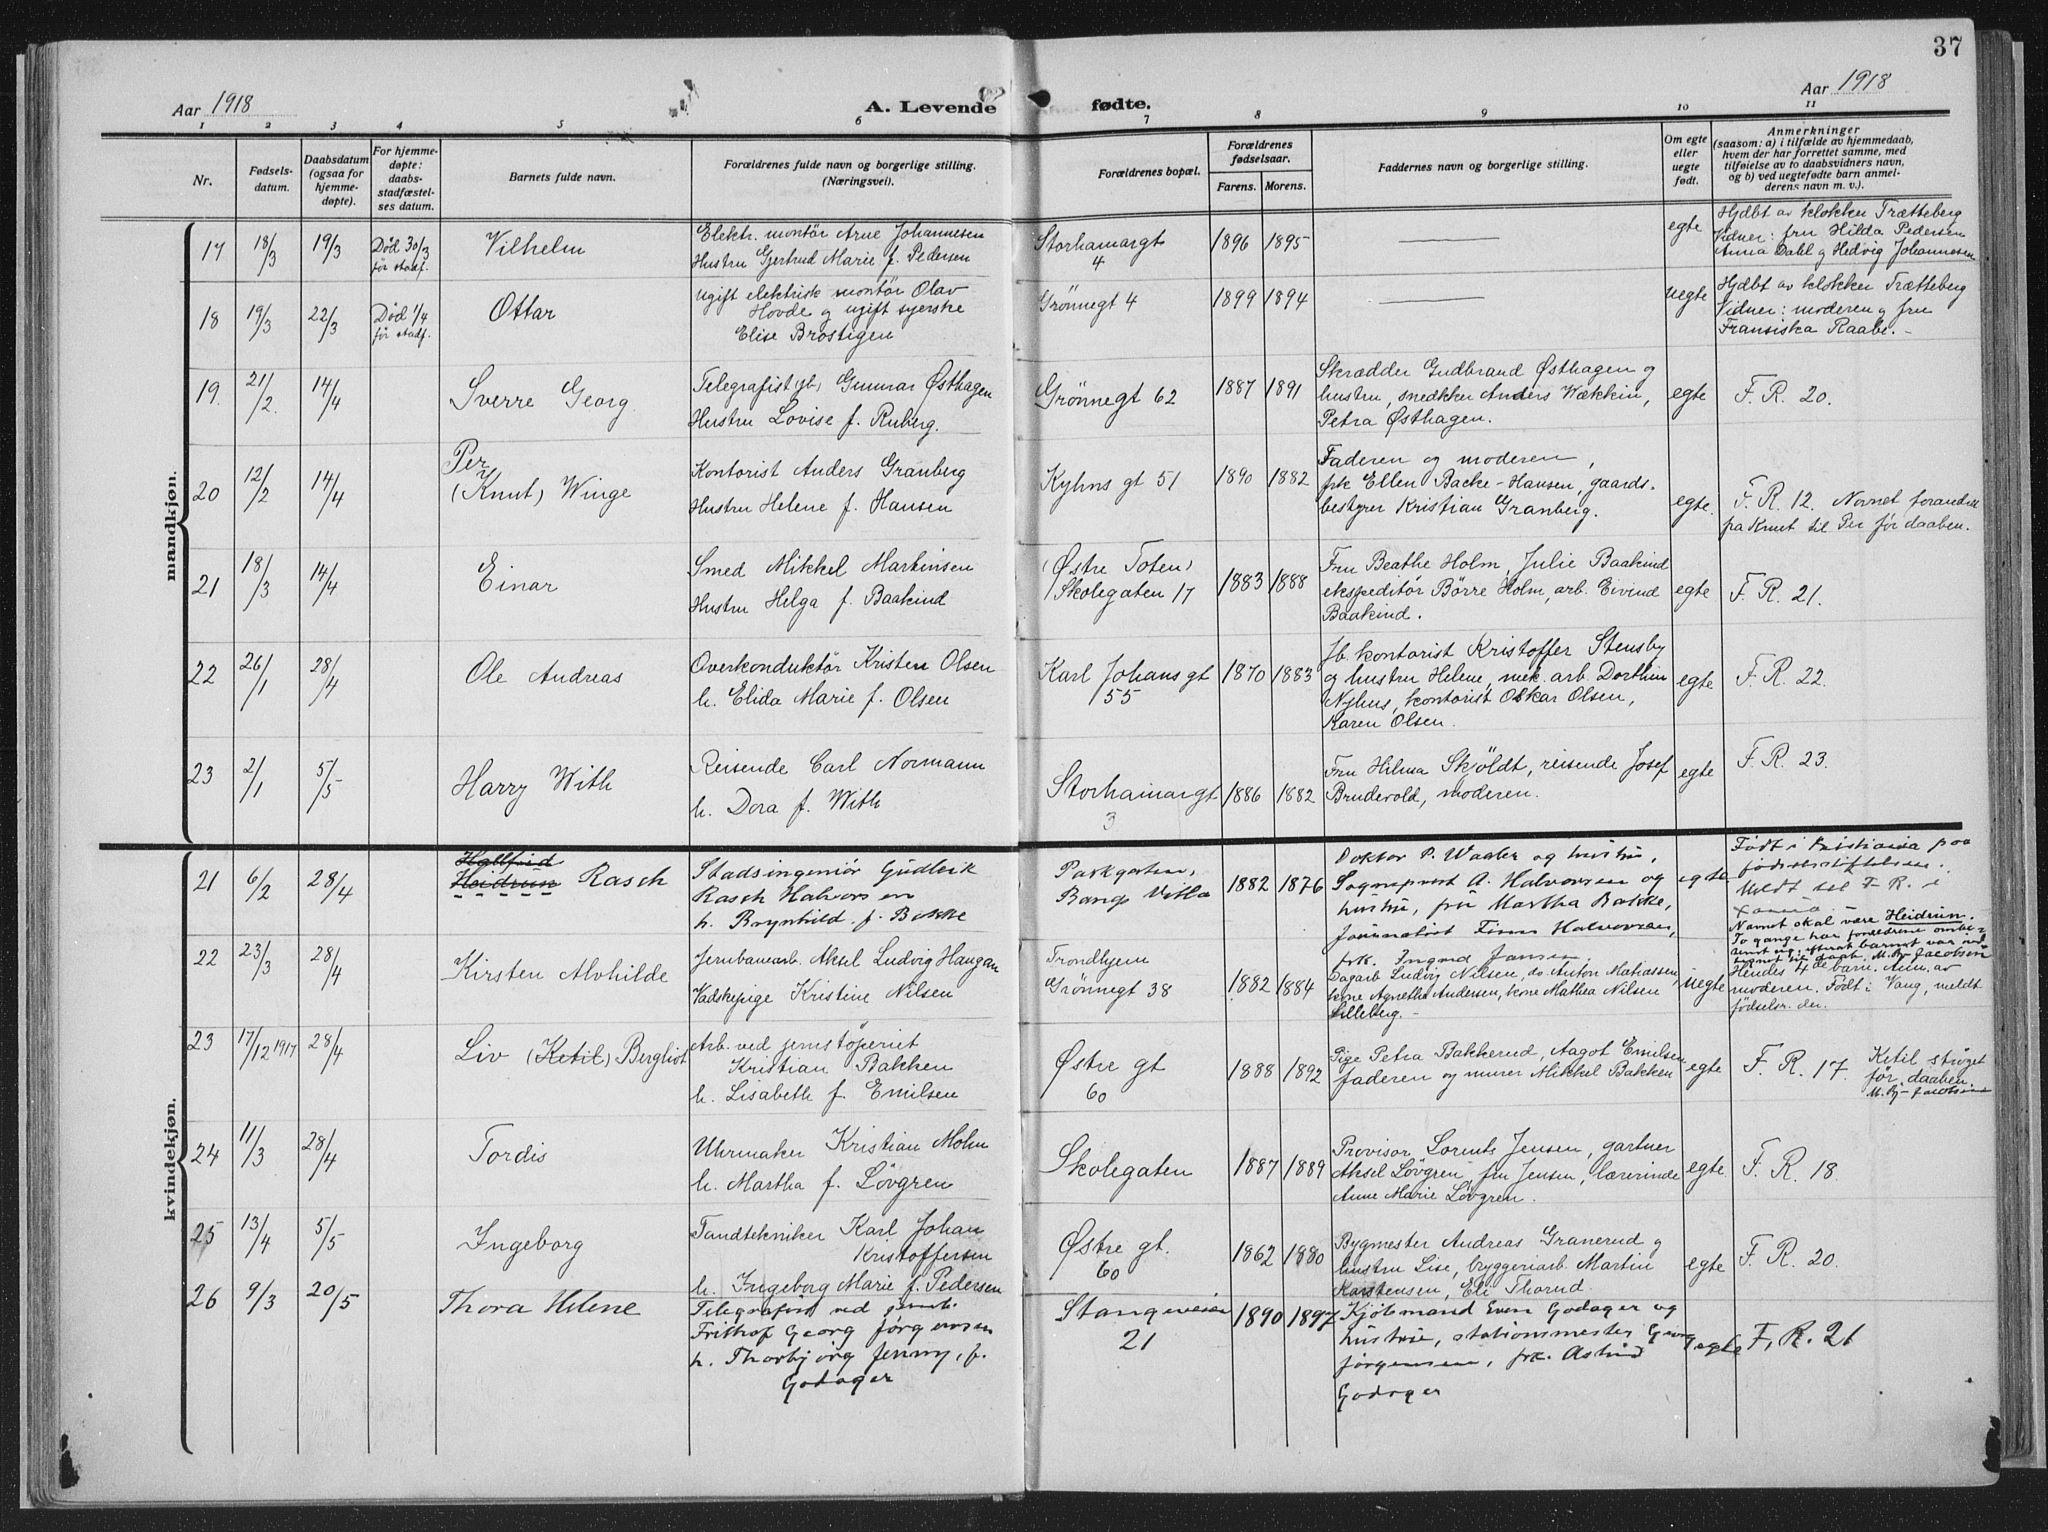 37
Aar 1918
A. Levende fødte.
Aar 1918
1 2 3 4 5 6 7 8 9 10 11
Nr.
Fødsels-
datum.
Daabsdatum
(ogsaa for
hjemme-
døpte).
For hjemme-
døpte:
daabs-
stadfæstel-
ses datum.
Barnets fulde navn.
Forældrenes fulde navn og borgerlige stilling.
(Næringsvei).
Forældrenes bopæl.
Forældrenes
fødselsaar.
Farens. Morens.
Faddernes navn og borgerlige stilling.
Om egte
eller
uegte
født.
Anmerkninger
(saasom: a) i tilfælde av hjemmedaab,
hvem der har forrettet samme, med
tilføielse av to daabsvidners navn,
og b) ved uegtefødte barn anmel-
derens navn m. v.).
mandkjøn.
17 18/3 19/3
Død 30/3
før stadf.
Vilhelm
Elektr. montør Arne Johannesen
Hustru Gjertrud Marie f. Pedersen
Storhamargt
4
1896 1895
egte
Hjdbt av klokker Trætteberg
Vidner: fru Hilda Pedersen
Anna Dahl g Hedvig Johannesen
18 19/3 22/3
Død 1/4
før stadf.
Ottar
Ugift elektrisk montør Olav
Hovde og ugift syerske
Elise Brostigen
Grønnegt 4
1899 1894
uegte
Hjdbt av klokker Trætteberg
Vidner: moderen g fru
Fransiska Raabe.
19. 21/2. 14/4
Sverre Georg
Telegrafist jb. Gunnar Østhagen
Hustru Lovise f. Ruberg.
Grønnegt 62
1887 1891
Skrædder Gudbrand Østhagen g
hustru, snedker Anders Wækkin,
Petra Østhagen.
egte
F. R. 20.
20 12/2 14/4
Per
(Knut) Winge
Kontorist Anders Granberg
Hustru Helene f. Hansen
Kyhns gt 51
1890 1882
Faderen og moderen,
frk Ellen Backe-Hansen, gaards-
bestyrer Kristian Granberg.
egte.
F. R. 12. Navnet forandret
paa Knut til Per før daaben.
21 18/3 14/4
Einar
Smed Mikkel Martinsen
Hustru Helga f. Baakind
(Østre Toten)
Skolegaten 17
1883 1888
Fru Beathe Holm, Julie Baakind
ekspeditør Børre Holm, arb. Eivind
Baakind.
egte
F. R. 21.
22 26/1 28/4
Ole Andreas
Overkonduktør Kristen Olsen
h. Elida Marie f. Olsen
Karl Johans gt
55
1870 1883
Jb. kontorist Kristoffer Stensby
og hustru Helene, mek. arb. Dorthin
Nyhus, kontorist Oskar Olsen,
Karen Olsen.
egte
F. R. 22.
23 2/1 5/5
Harry With
Reisende Carl Normann
h. Dora f. With
Storhamargt
3
1886 1882
Fru Hilma Skjöldt, reisende Josef
Brudevold, moderen.
egte
F. R. 23.
kvindekjøn.
21 6/2 28/4
Hallfrid
Heidrun Rasch
Stadsingeniør Gudleik
Rasch Halvorsen
h. Brynhild f. Bakke
Parkgarten,
Bangs Villa
1882 1876
Doktor P. Waaler og hustru,
Sogneprest A. Halvorsen og
hustru, fru Martha Bakke,
journalist Finn Halvorsen,
frk. Ingrid Jansen.
egte
Født i Kristiania paa
fødselsstiftelsen.
Meldt til F. R. i
Navnet skal være Heidrun.
To gange har forældrene ombe-
M. By-Jacobsen
22 23/3 28/4
Kirsten Alvhilde
Jernbanearb. Aksel Ludvig Haugan
Vadskepige Kristine Nilsen
Trondhjem
Grønnegt 38
1882 1884
Dagarb. Ludvig Nilsen, do. Anton Matiassen,
kone Agnethe Andersen, kone Mathea Nilsen
Lilleberg.
uegte
Hendes 4de barn. Anm. av
moderen. Født i Vang, meldt
fødselsr. der.
23 17/12 1917 28/4
Liv (Ketil) Bergliot
Arb. ved jernstøperiet
Kristian Bakken
h. Lisabeth f. Emilsen
Østre gt
60
1888 1892
Pige Petra Bakkerud, Aagot Emilsen
faderen og murer Mikkel Bakken
egte
F. R. 17.
Ketil strøget
før daaben.
M. By-Jacobsen
24 11/3 28/4
Tordis
Uhrmaker Kristian Molm
h. Martha f. Løvgren
Skolegaten
1887 1889
Provisor Lorents Jensen, gartner
Aksel Løvgren, fru Jensen, lærerinde
Anne Marie Løvgren.
egte
F. R. 18.
25 13/4 5/5
Ingeborg
Tandtekniker Karl Johan
Kristoffersen
h. Ingeborg Marie f. Pedersen
Østre gt.
60
1862 1880
Bygmester Andreas Granerud g
hustru Lise, bryggeriarb. Martin
Karstensen, Eli Thorud.
egte
F. R. 20.
26 9/3 20/5
Thora Helene
Telegrafist ved jernb.
Frithof Georg Jørgensen
h. Thorbjørg Jenny, f.
Godager
Stangeveien
21
1890 1897
Kjøbmand Even Godager og
hustru, stationmester Georg
Jørgensen, frk. Astrid
Godager
egte
F. R. 21